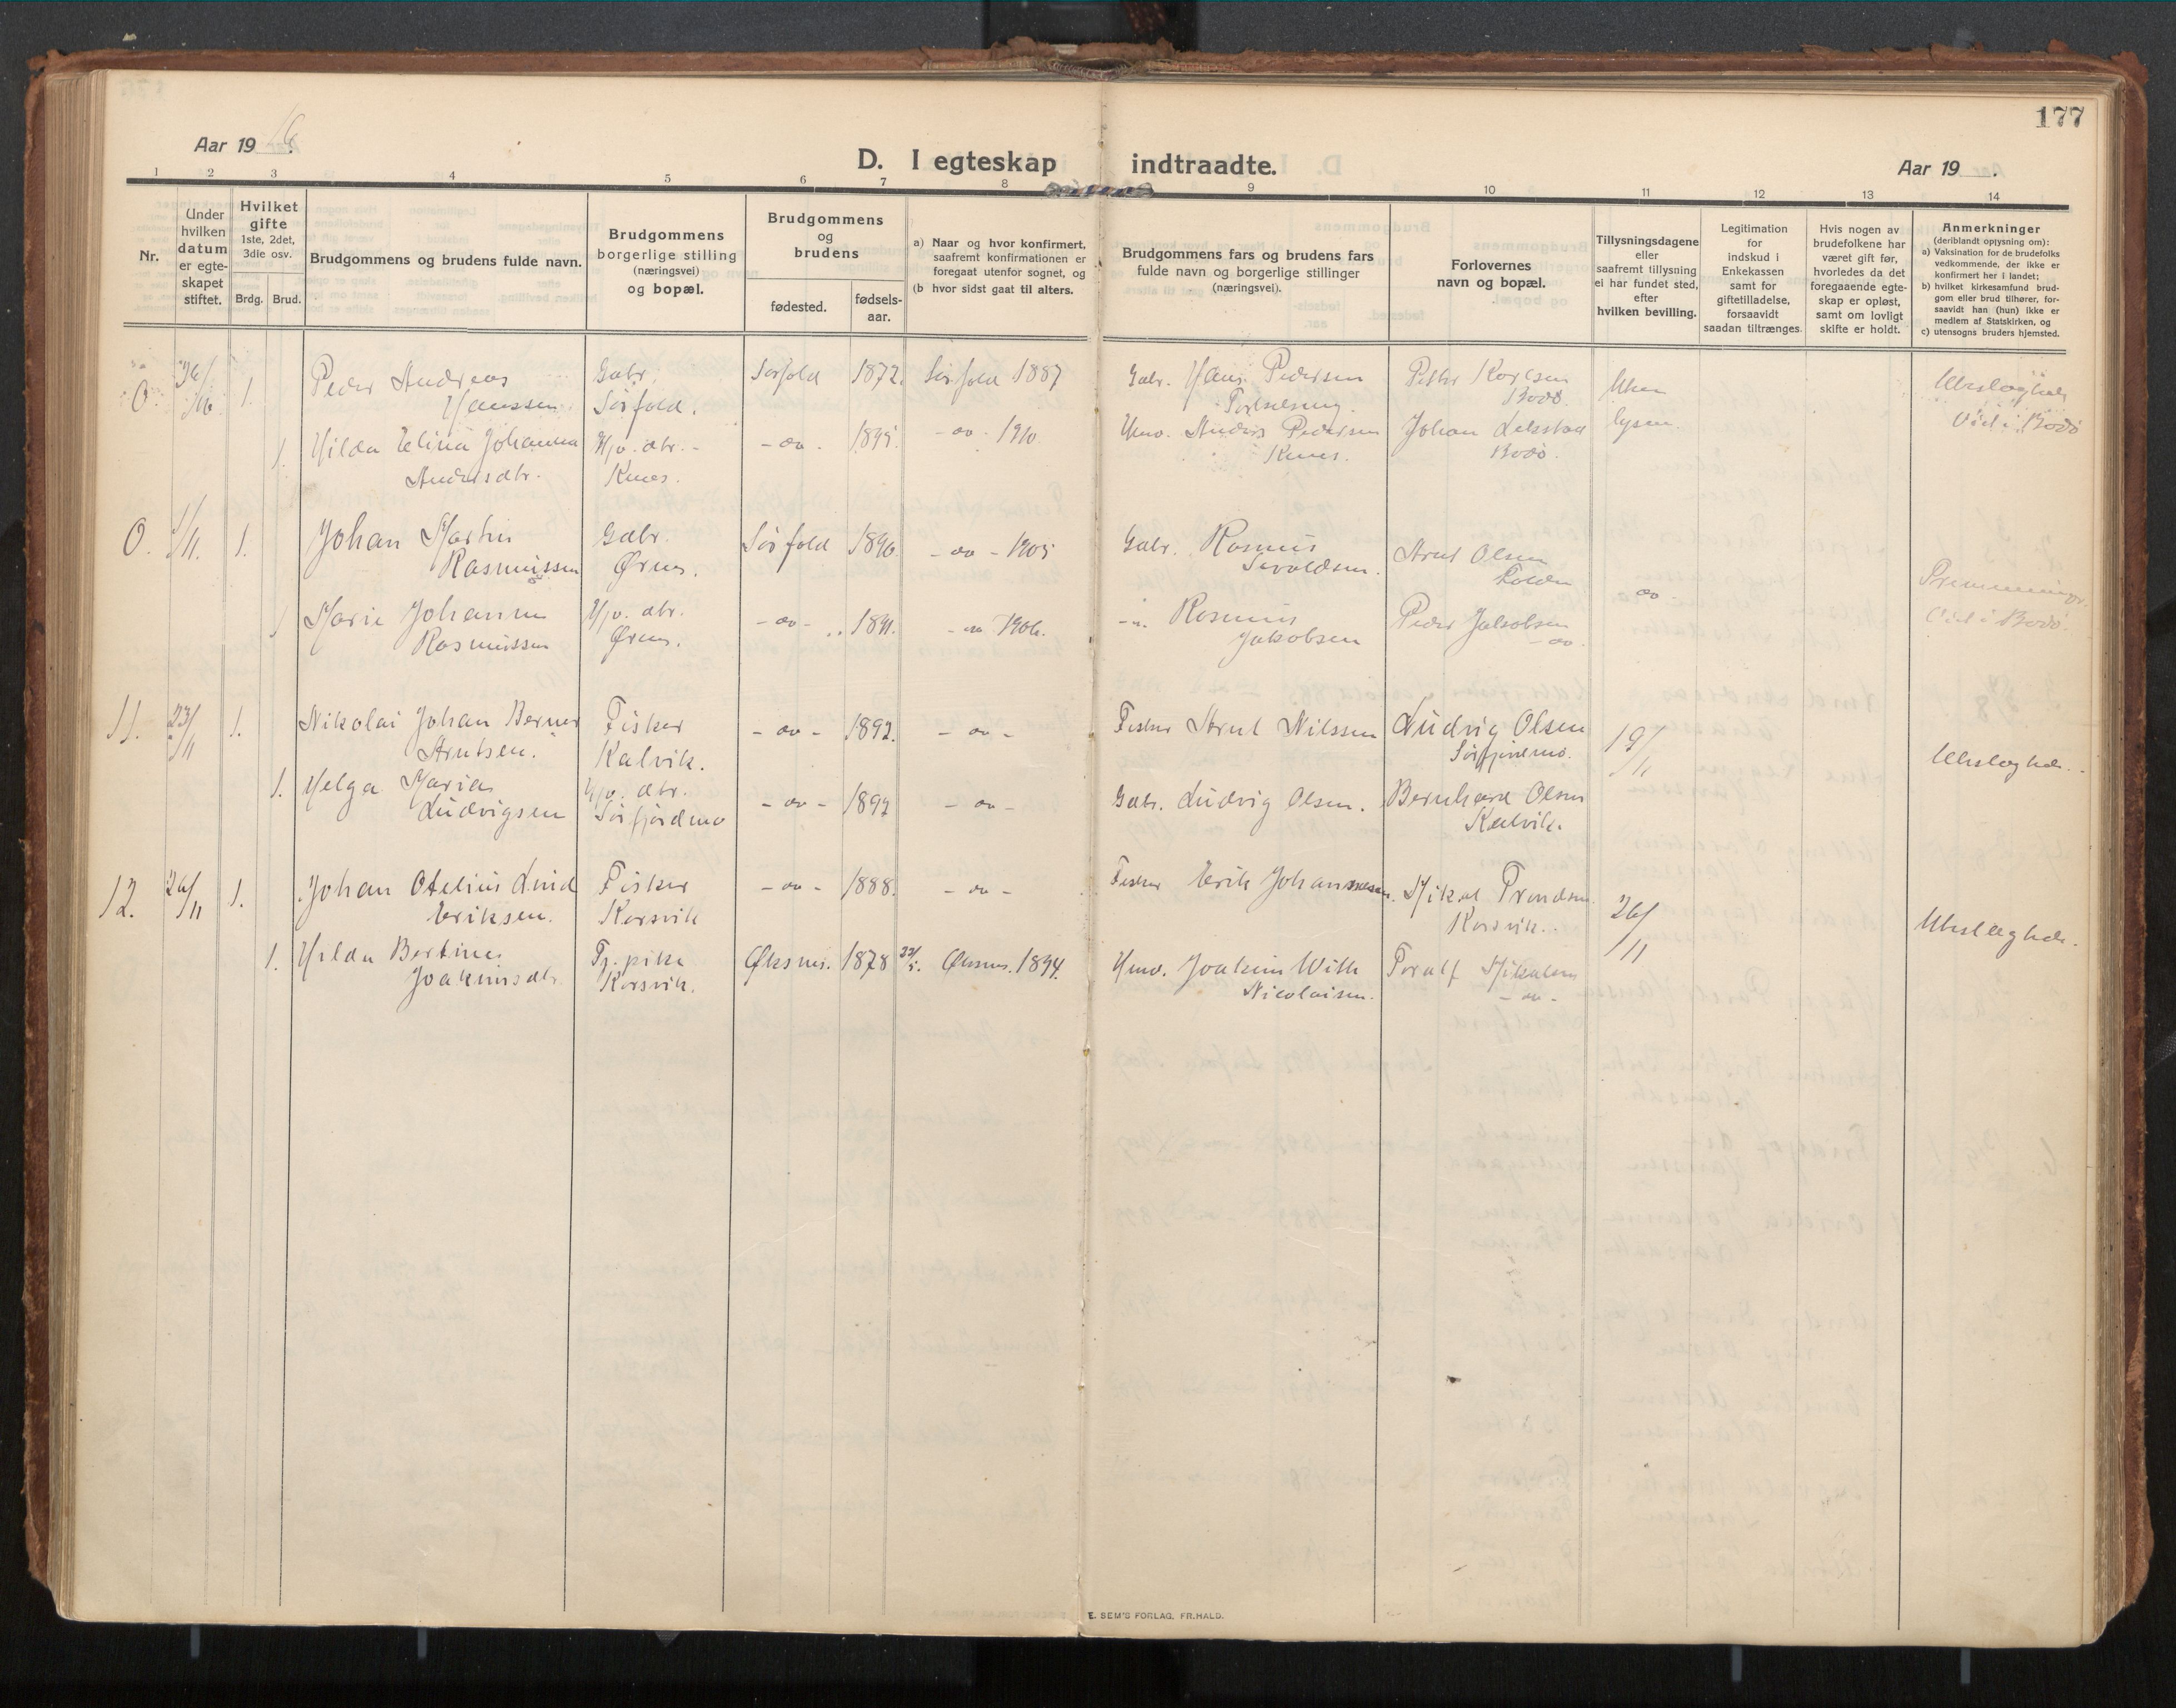 177
Aar 1916.
D. I egteskap indtraadte.
Aar 19 .
1 2 3 4 5 6 7 8 9 10 11 12 13 14
Nr.
Under hvilken datum er egteskapet stiftet.
Hvilket gifte
1ste, 2det, 3die osv.
Brdg. Brud.
Brudgommens og brudens fulde navn.
Brudgommens borgerlige stilling (næringsvei) og bopæl.
Brudgommens og brudens
fødested.
fødsels-aar.
a) Naar og hvor konfirmert, saafremt konfirmationen er foregaat utenfor sognet, og
(b hvor sidst gaat til alters.
Brudgommens fars og brudens fars fulde navn og borgerlige stillinger (næringsvei).
Forlovernes navn og bopæl.
Tillysningsdagene eller saafremt tillysning ei har fundet sted, efter hvilken bevilling.
Legitimation for indskud i Enkekassen samt for giftetilladelse, forsaavidt saadan tiltrænges.
Hvis nogen av brudefolkene har været gift før, hvorledes da det foregaaende egteskap er opløst, samt om lovligt skifte er holdt.
Anmerkninger
(deriblandt opjysning om):
a) Vaksination for de brudefolks vedkommende, der ikke er konfirmert her i landet;
b) hvilket kirkesamfund brudgom eller brud tilhører, forsaavidt han (hun) ikke er medlem af Statskirken, og
c) utensogns bruders hjemsted.
0. 1. Peder Andreas Gabr. Sørfold 1872. Sørfold 1887 Gabr. Hans Pedersen Peder Karlsen Uten
Hanssen Sørfold. Bodø
1. Hilda Elina Johanna - do - - do - 1910 Anders Pedersen Johan lysn. Viet i Bodø
Andersdtr. Knes. Knes. Bodø.
0. 1/11. 1. Johan Martin Gabr. Sørfold 1890. - do - 1905 Gabr. Rasmus Arnt Olsen
Rasmussen Ørnes. Sivaldsen. Folden
1 Marie Johanna Ørnes. - do - 1891. - do 1906. Rasmus Peder Jakobsen do Viet i Bodø.
Rasmussen Jakobsen - do
11. 23/11 1. Nikolai Johan Berner Fisker - do - 1892. - do - Fisker Arnt Nilssen Ludvig Olsen 19/11
Arntsen. Kalvik. Sørfjordmo.
1. Helga Maria - do - - do - Gabr. Ludvig Olsen. Bernhard Olsen
Ludvigsen Sørfjordmo Kalvik.
12. 26/11 1. Johan Otelius Lind Fisker - do - 1888. - do - Fisker Erik Johannesen. Mikal Trondsen 26/11
Eriksen. Korsvik Korsvik.
1. Hilda Bertine Tj. pike Øksnes. 1878 Øksnes. 1894. Joakim With Toralf Mikalsen
Joakimsdtr. Korsvik. Nicolaisen. - do -
E. SEM'S FORLAG, FR.HALD.